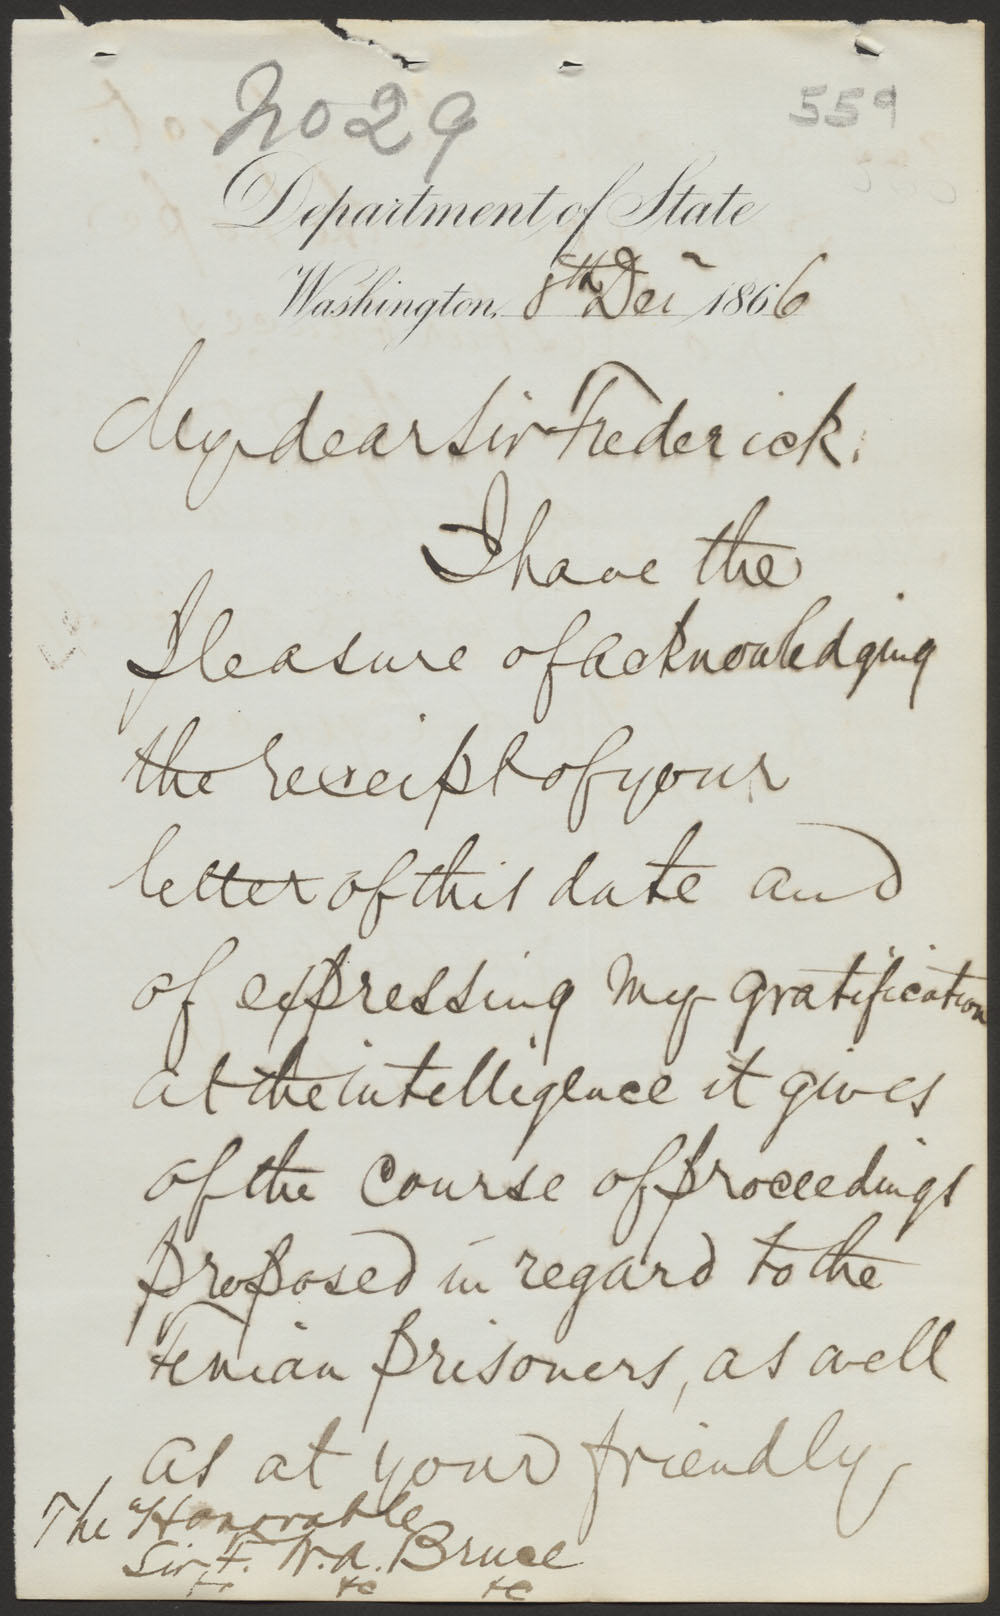 No 29
559
Department of State
Washington, 8th Decr 1866
My dear Sir Frederick.
I have the
pleasure of acknowledging
the receipt of your
letter of this date and
of expressing my gratification
at the intelligence it gives
of the course of proceedings
proposed in regard to the
Fenian prisoners, as well
as at your friendly
The Honorable
Sir F. W. A. Bruce
&c &c &c